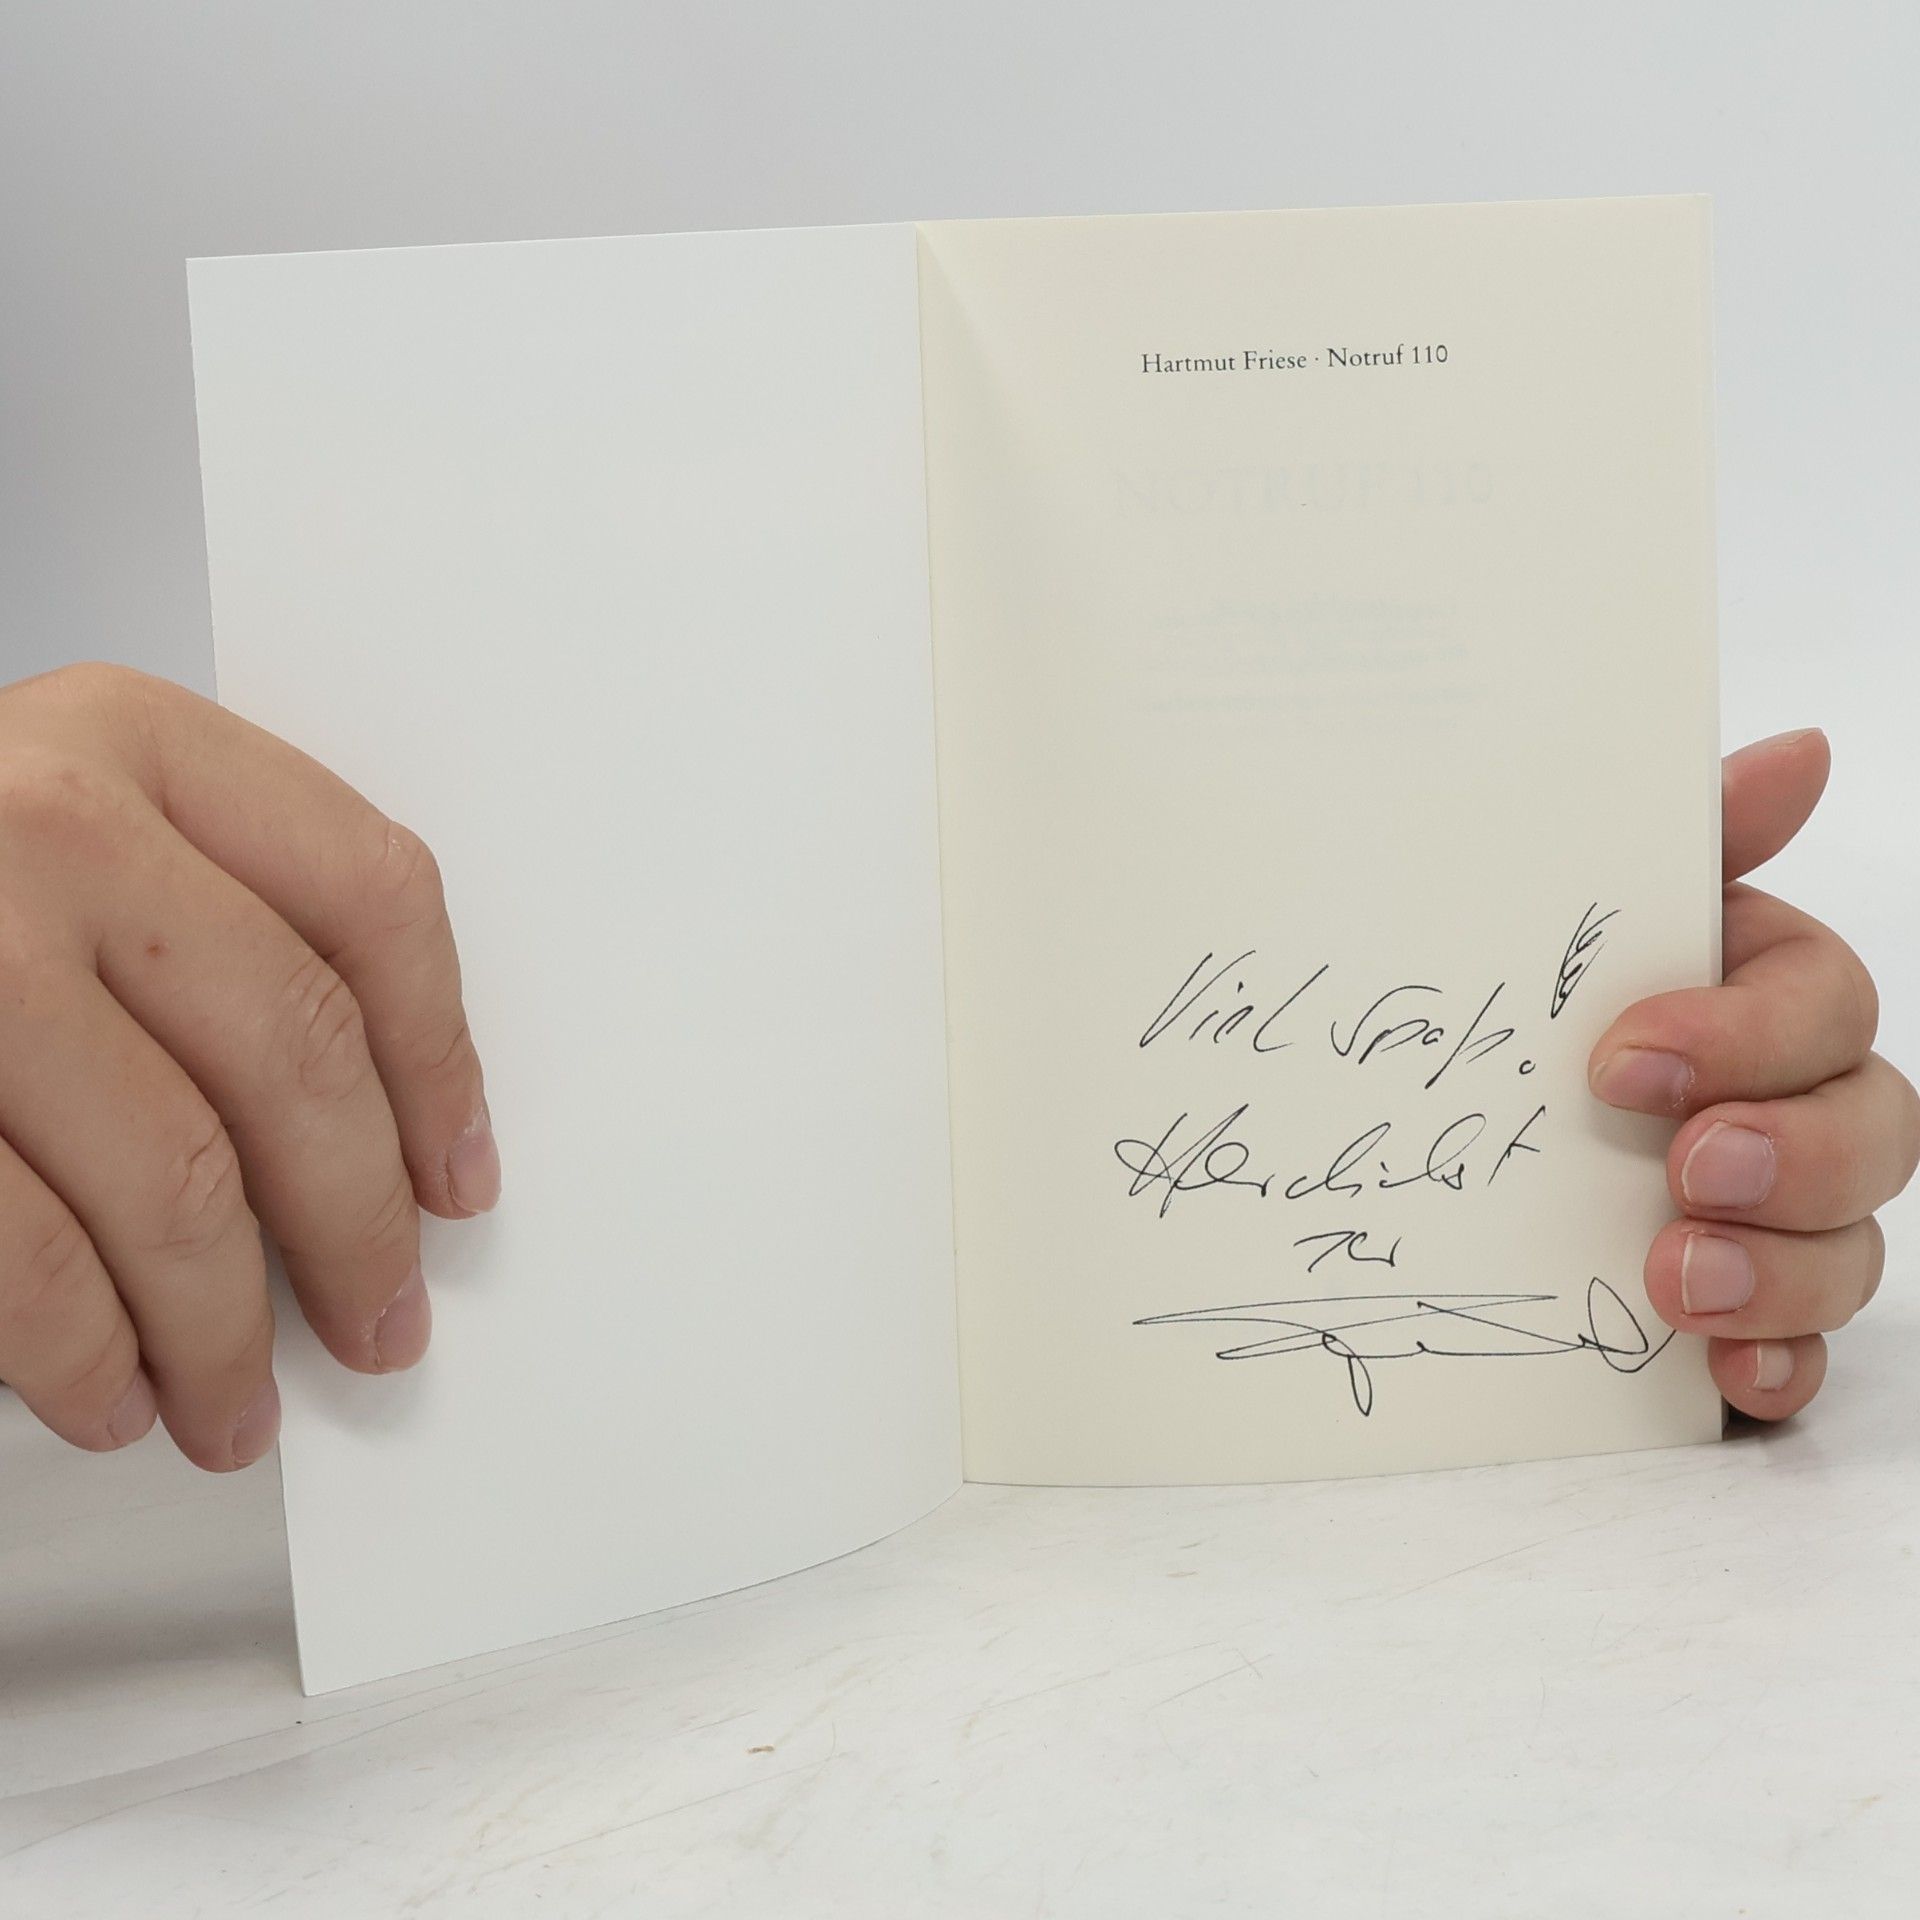 Hartmut Friese · Notruf 110
NOTRUF 110
Viel Spaß!
Herzlichst
Ihr